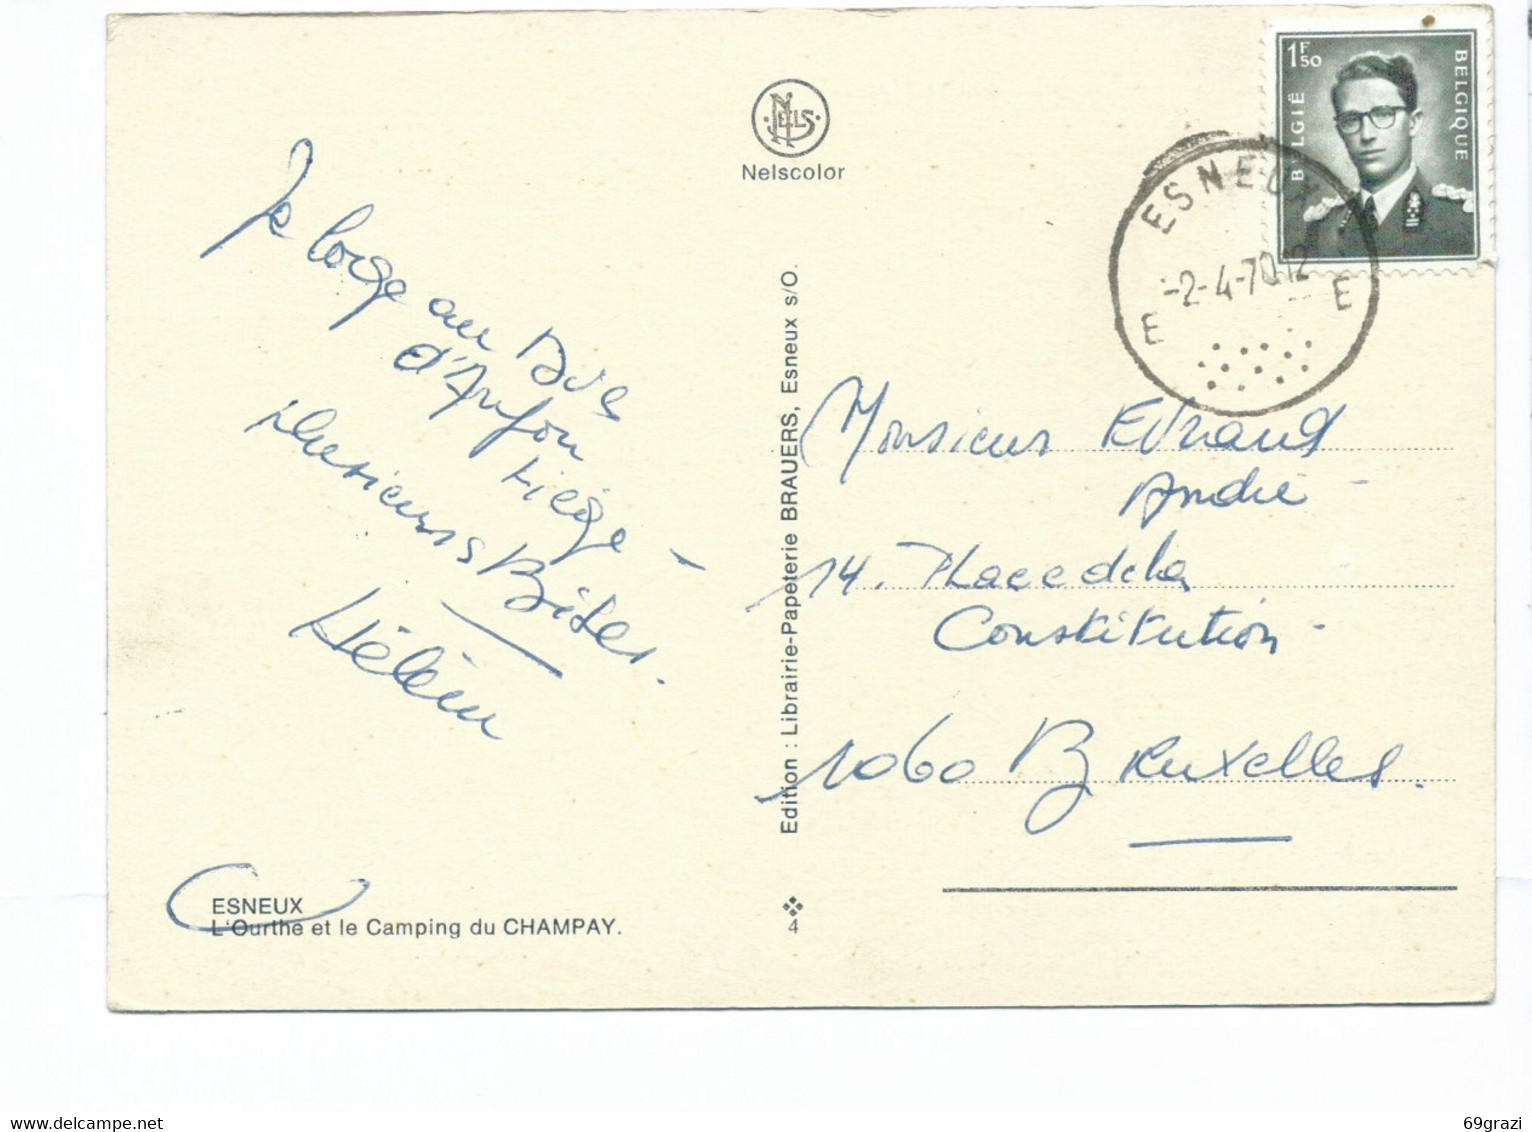 NELS
Nelscolor
1F50
BELGIË
BELGIQUE
ESNEUX
-2-4-70 12
E E
Je loge au Bois
d'
Liège -
plusieurs Bises.
Hélène
Monsieur Evrard
André -
14. Place de la
Constitution -
1060 Bruxelles.
Edition : Librairie-Papeterie BRAUERS, Esneux s/O.
ESNEUX
L'Ourthe et le Camping du CHAMPAY.
4
69grazi